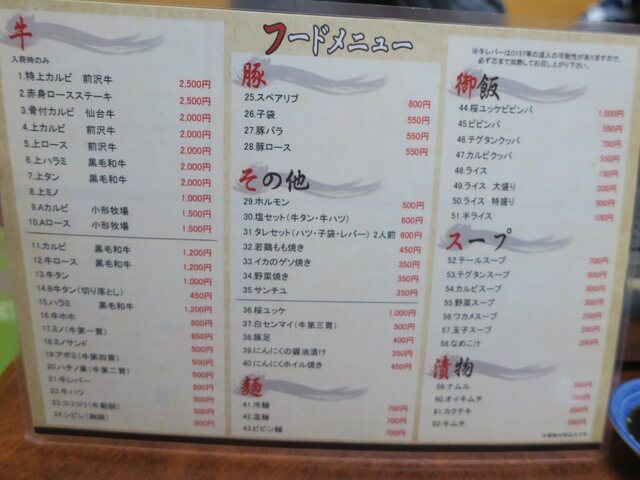 フードメニュー
牛
入荷時のみ
1.特上カルビ 前沢牛 2,500円
2.赤身ロースステーキ 2,500円
3.骨付カルビ 仙台牛 2,000円
4.上カルビ 前沢牛 2,000円
5.上ロース 前沢牛 2,000円
6.上ハラミ 黒毛和牛 2,000円
7.上タン 黒毛和牛 2,000円
8.上ミノ 1,000円
9.Aカルビ 小形牧場 1,500円
10.Aロース 小形牧場 1,500円
11.カルビ 黒毛和牛 1,200円
12.牛ロース 黒毛和牛 1,200円
13.牛タン 1,000円
14.B牛タン(切り落とし) 450円
15.ハラミ 黒毛和牛 1,200円
16.牛ホホ 600円
17.ミノ(牛第一胃) 650円
18.ミノサンド 500円
19.アボミ(牛第四胃) 500円
20.ハチノ巣(牛第二胃) 500円
21.牛レバー 500円
22.牛ハツ 500円
23.コリコリ(牛動脈) 500円
24.シビレ(胸腺) 500円
豚
25.スペアリブ 800円
26.子袋 550円
27.豚バラ 550円
28.豚ロース 550円
その他
29.ホルモン 500円
30.塩セット(牛タン・牛ハツ) 600円
31.タレセット(ハツ・子袋・レバー) 2人前 600円
32.若鶏もも焼き 450円
33.イカのゲソ焼き 350円
34.野菜焼き 350円
35.サンチュ 350円
36.桜ユッケ 1,000円
37.白センマイ(牛第三胃) 500円
38.豚足 400円
39.にんにくの醤油漬け 350円
40.にんにくホイル焼き 450円
麺
41.冷麺 700円
42.温麺 700円
43.ビビン麺 700円
※牛レバーはO157等の混入の可能性がありますので、
必ず芯まで加熱してお召し上がり下さい。
御飯
44.桜ユッケビビンバ 1,500円
45.ビビンバ 550円
46.テグタンクッパ 700円
47.カルビクッパ 550円
48.ライス 150円
49.ライス 大盛り 200円
50.ライス 特盛り 500円
51.半ライス 100円
スープ
52.テールスープ 700円
53.テグタンスープ 600円
54.カルビスープ
55.野菜スープ 300円
56.ワカメスープ
57.玉子スープ
58.なめこ汁 200円
漬物
59.ナムル 350円
60.オイキムチ
61.カクテキ 350円
62.キムチ 350円